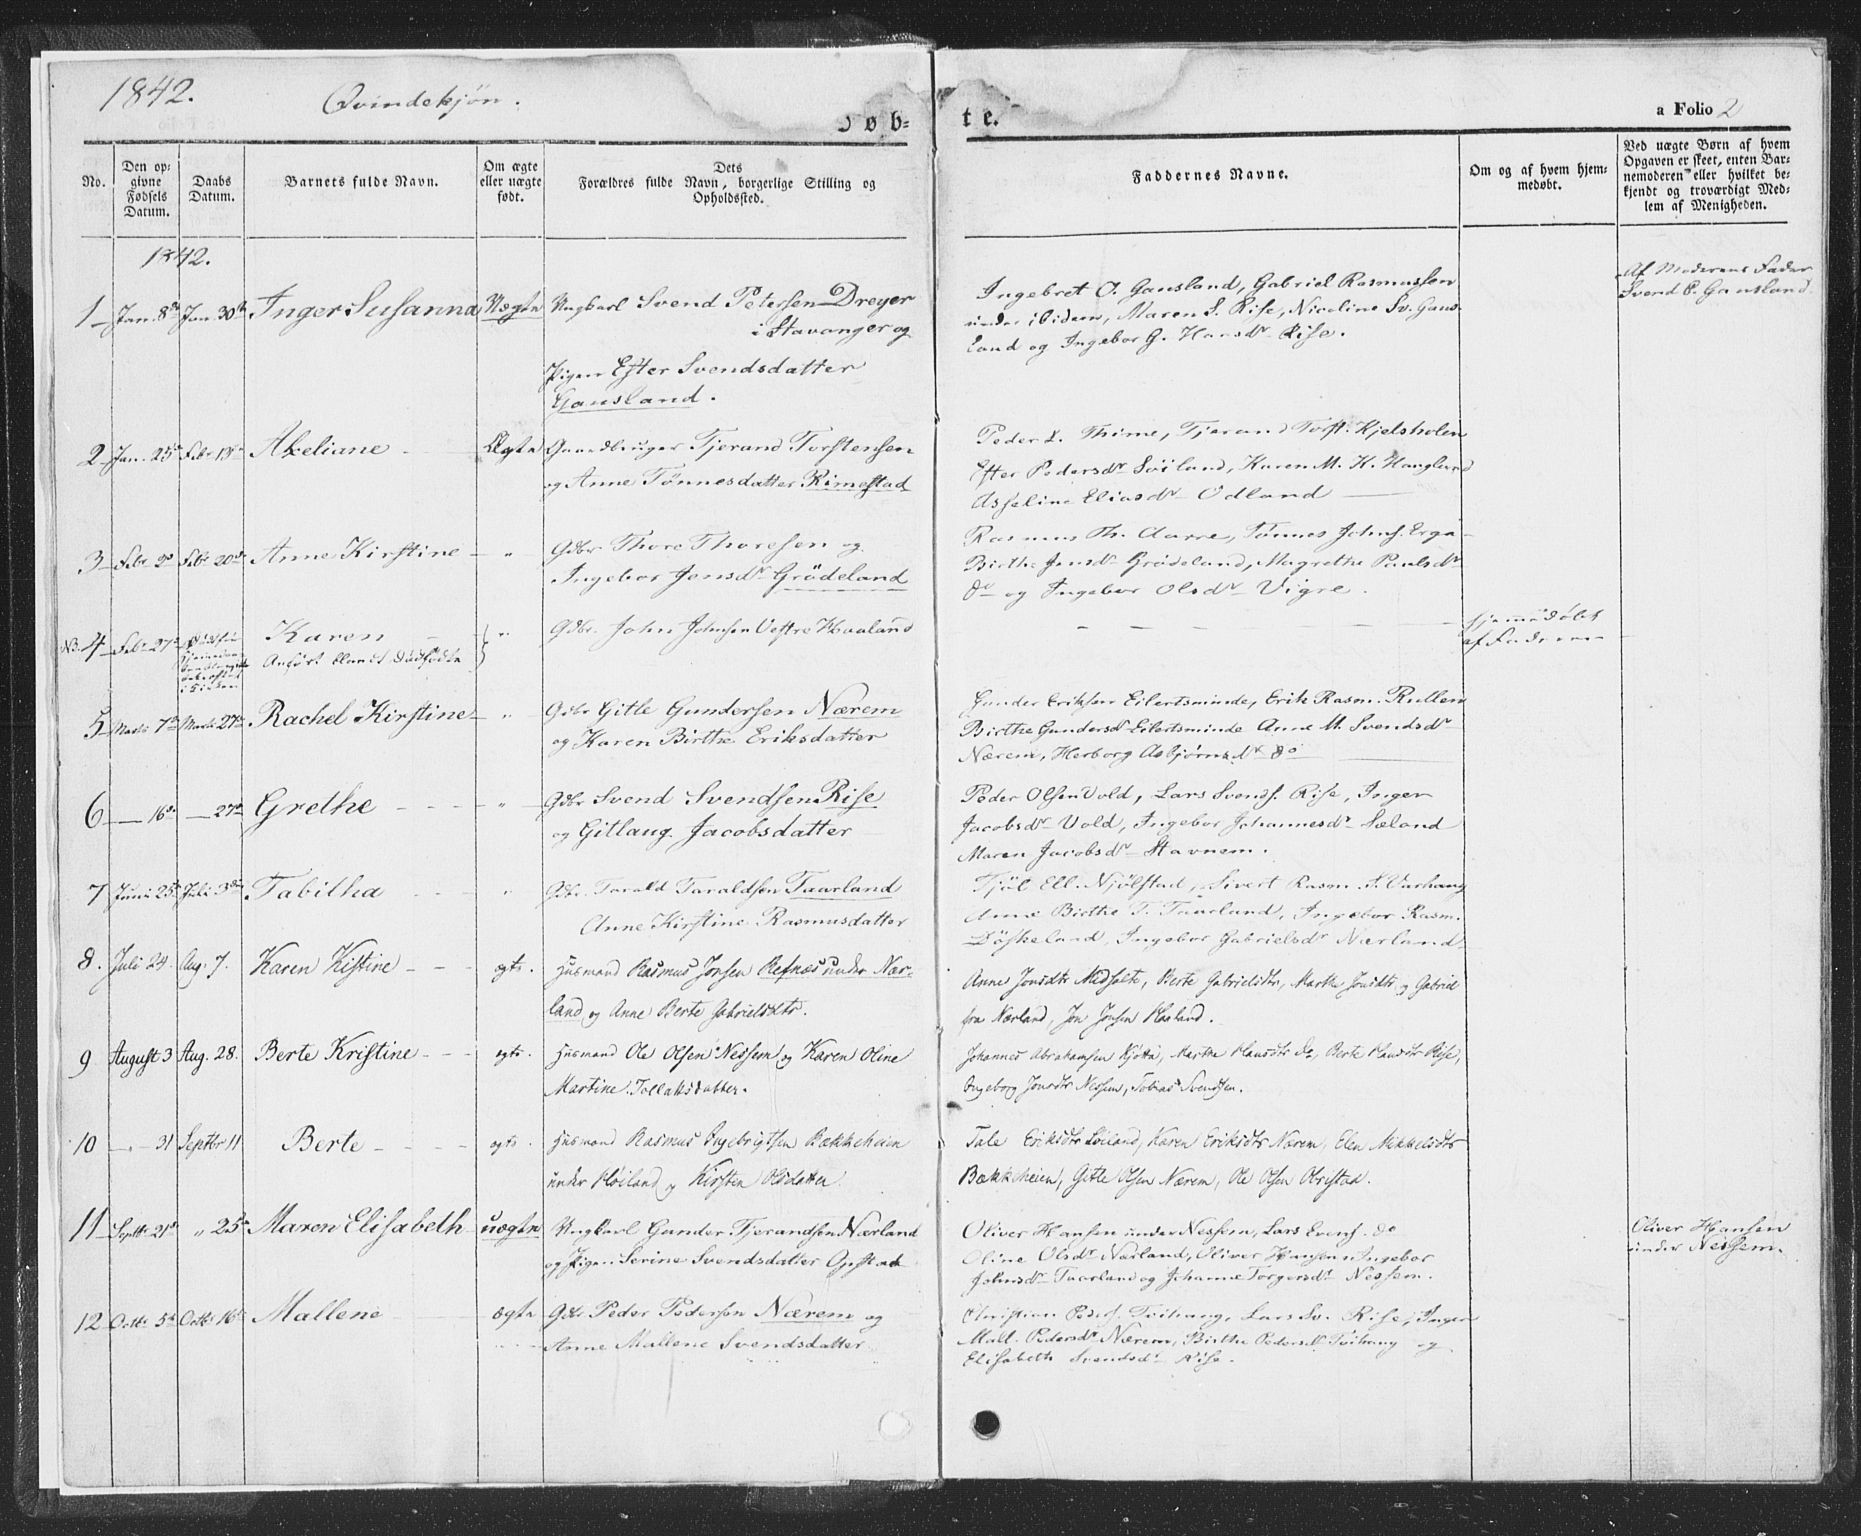 1842.
Qvindekjøn.
øb-
te.
a Folio 2
No.
Den op-
givne
Fødsels
Datum.
Daabs
Datum.
Barnets fulde Navn.
Om ægte
eller uægte
født.
Dets
Forældres fulde Navn, borgerlige Stilling og
Opholdssted.
Faddernes Navne.
Om og af hvem hjem-
medøbt.
Ved uægte Børn af hvem
Opgaven er skeet, enten Bar-
nemoderen eller hvilket be-
kjendt og troværdigt Med-
lem af Menigheden.
1842.
1 Jan. 8de Jan. 30te Inger Susanna Uægte Ungkarl Svend Petersen Dreyer
i Stavanger og
Pigen Ester Svendsdatter
Gausland.
Ingebret O. Gausland, Gabriel Rasmussen
under ibidem, Maren S. Rise, Nicoline Sv. Gaus-
land og Ingebor G. Hansdr Rise.
Af Moderens Fader
Svend P. Gausland.
2 Jan. 25de Febr. 13de Axeliane Ægte Gaardbruger Tjerand Torstensen
og Anne Tönnesdatter Rimestad
Peder L. Thime, Tjerand Torst. Kjelsholen
Ester Pedersdr Söiland, Karen M. K. Haugland
Asseline Eliasdr Odland
3 Febr. Febr. 20de Anne Kirstine " Gdbr Thore Thoresen og
Ingebor Jensdr Grödeland
Rasmus Th. Aarre, Tönnes Johns. Erga
Birthe Jensdr Grödeland, Magrethe Paulsdr
do og Ingebor Olsdr Vigre.
NB. 4 Febr. 27de Karen " Gdbr. John Johnsen Vestre Haaland
Anført blandt Dödfödte
hjemmedøbt
af Faderen
5 Marts 7de Marts 27de Rachel Kirstine " Gdbr Gitle Gundersen Nærem
og Karen Birthe Eriksdatter
Gunder Eriksen Eilertsminde, Erik Rasm. Rullen
Birthe Gundersdr Eilertsminde Anne M. Svendsdr
Nærem, Herborg Asbjørnsdr do
6 — 16de — 27de Grethe " Gdbr Svend Svendsen Rise
og Gitlaug Jacobsdatter
Peder Olsen Vold, Lars Svends. Rise, Inger
Jacobsdr Vold, Ingebor Johannesdr Sæland
Maren Jacobsdr Stavnem.
7 Juni 25de Juli 3die Tabitha " Gdbr. Tarald Taraldsen Taarland
Anne Kirstine Rasmusdatter
Tjöl Ell. Njölstad, Sivert Rasm. S. Varhaug
Anne Birthe T. Taarland, Ingebor Rasm.
Döskeland, Ingebor Gabrielsdr Nærland.
8. Juli 24. Aug. 7. Karen Kistine egte. Husmand Rasmus Jonsen Refnæs under Nær-
land og Anne Berte Gabrielsdtr.
Anne Jonsdtr Nedholte, Berte Gabrielsdtr, Marthe Jonsdtr og Gabriel
fra Nærland, Jon Jonsen Haaland.
9 August 3 Aug. 28. Berte Kristine egte. Husmand Ole Olsen Nessem og Karen Oline
Martine Tollaksdatter.
Johannes Abrahamsen Kjotta, Marthe Hansdtr do, Berte Hansdtr Rise,
Ingeborg Jonsdtr Nessem, Tobias Svendsen.
10 — 31 Septbr 11 Berte egte. Husmand Rasmus Ingebrigtsen Bækkeheien
under Høiland og Kirsten Olsdatter.
Tale Eriksdtr Loiland, Karen Eriksdtr Nærem, Elen Mikkelsdtr
Bækkeheien, Gitle Olsen Nærem, Ole Olsen Obristad.
11 Septbr 21de " 25de Maren Elisabeth uægte Ungkarl Gunder Tjerandsen Nærland
og Pigen Serine Svendsdatter Opstad
Oliver Hansen under Nessem, Lars Evens. do
Oline Olsdr Nærland, Oliver Hansen Ingebor
Johnsdr Taarland og Johanne Torgersdr Nessem.
Oliver Hansen
under Nessem.
12 Octbr 5te Octbr 16de Mallene ægte Gdbr Peder Pedersen Nærem og
Anne Mallene Svendsdatter
Christian Peders. Tvihaug, Lars Sv. Rise, Inger
Mall. Pedersdr Nærem, Birthe Pedersdr Tvihaug og
Elisabeth Svendsdr Rise.